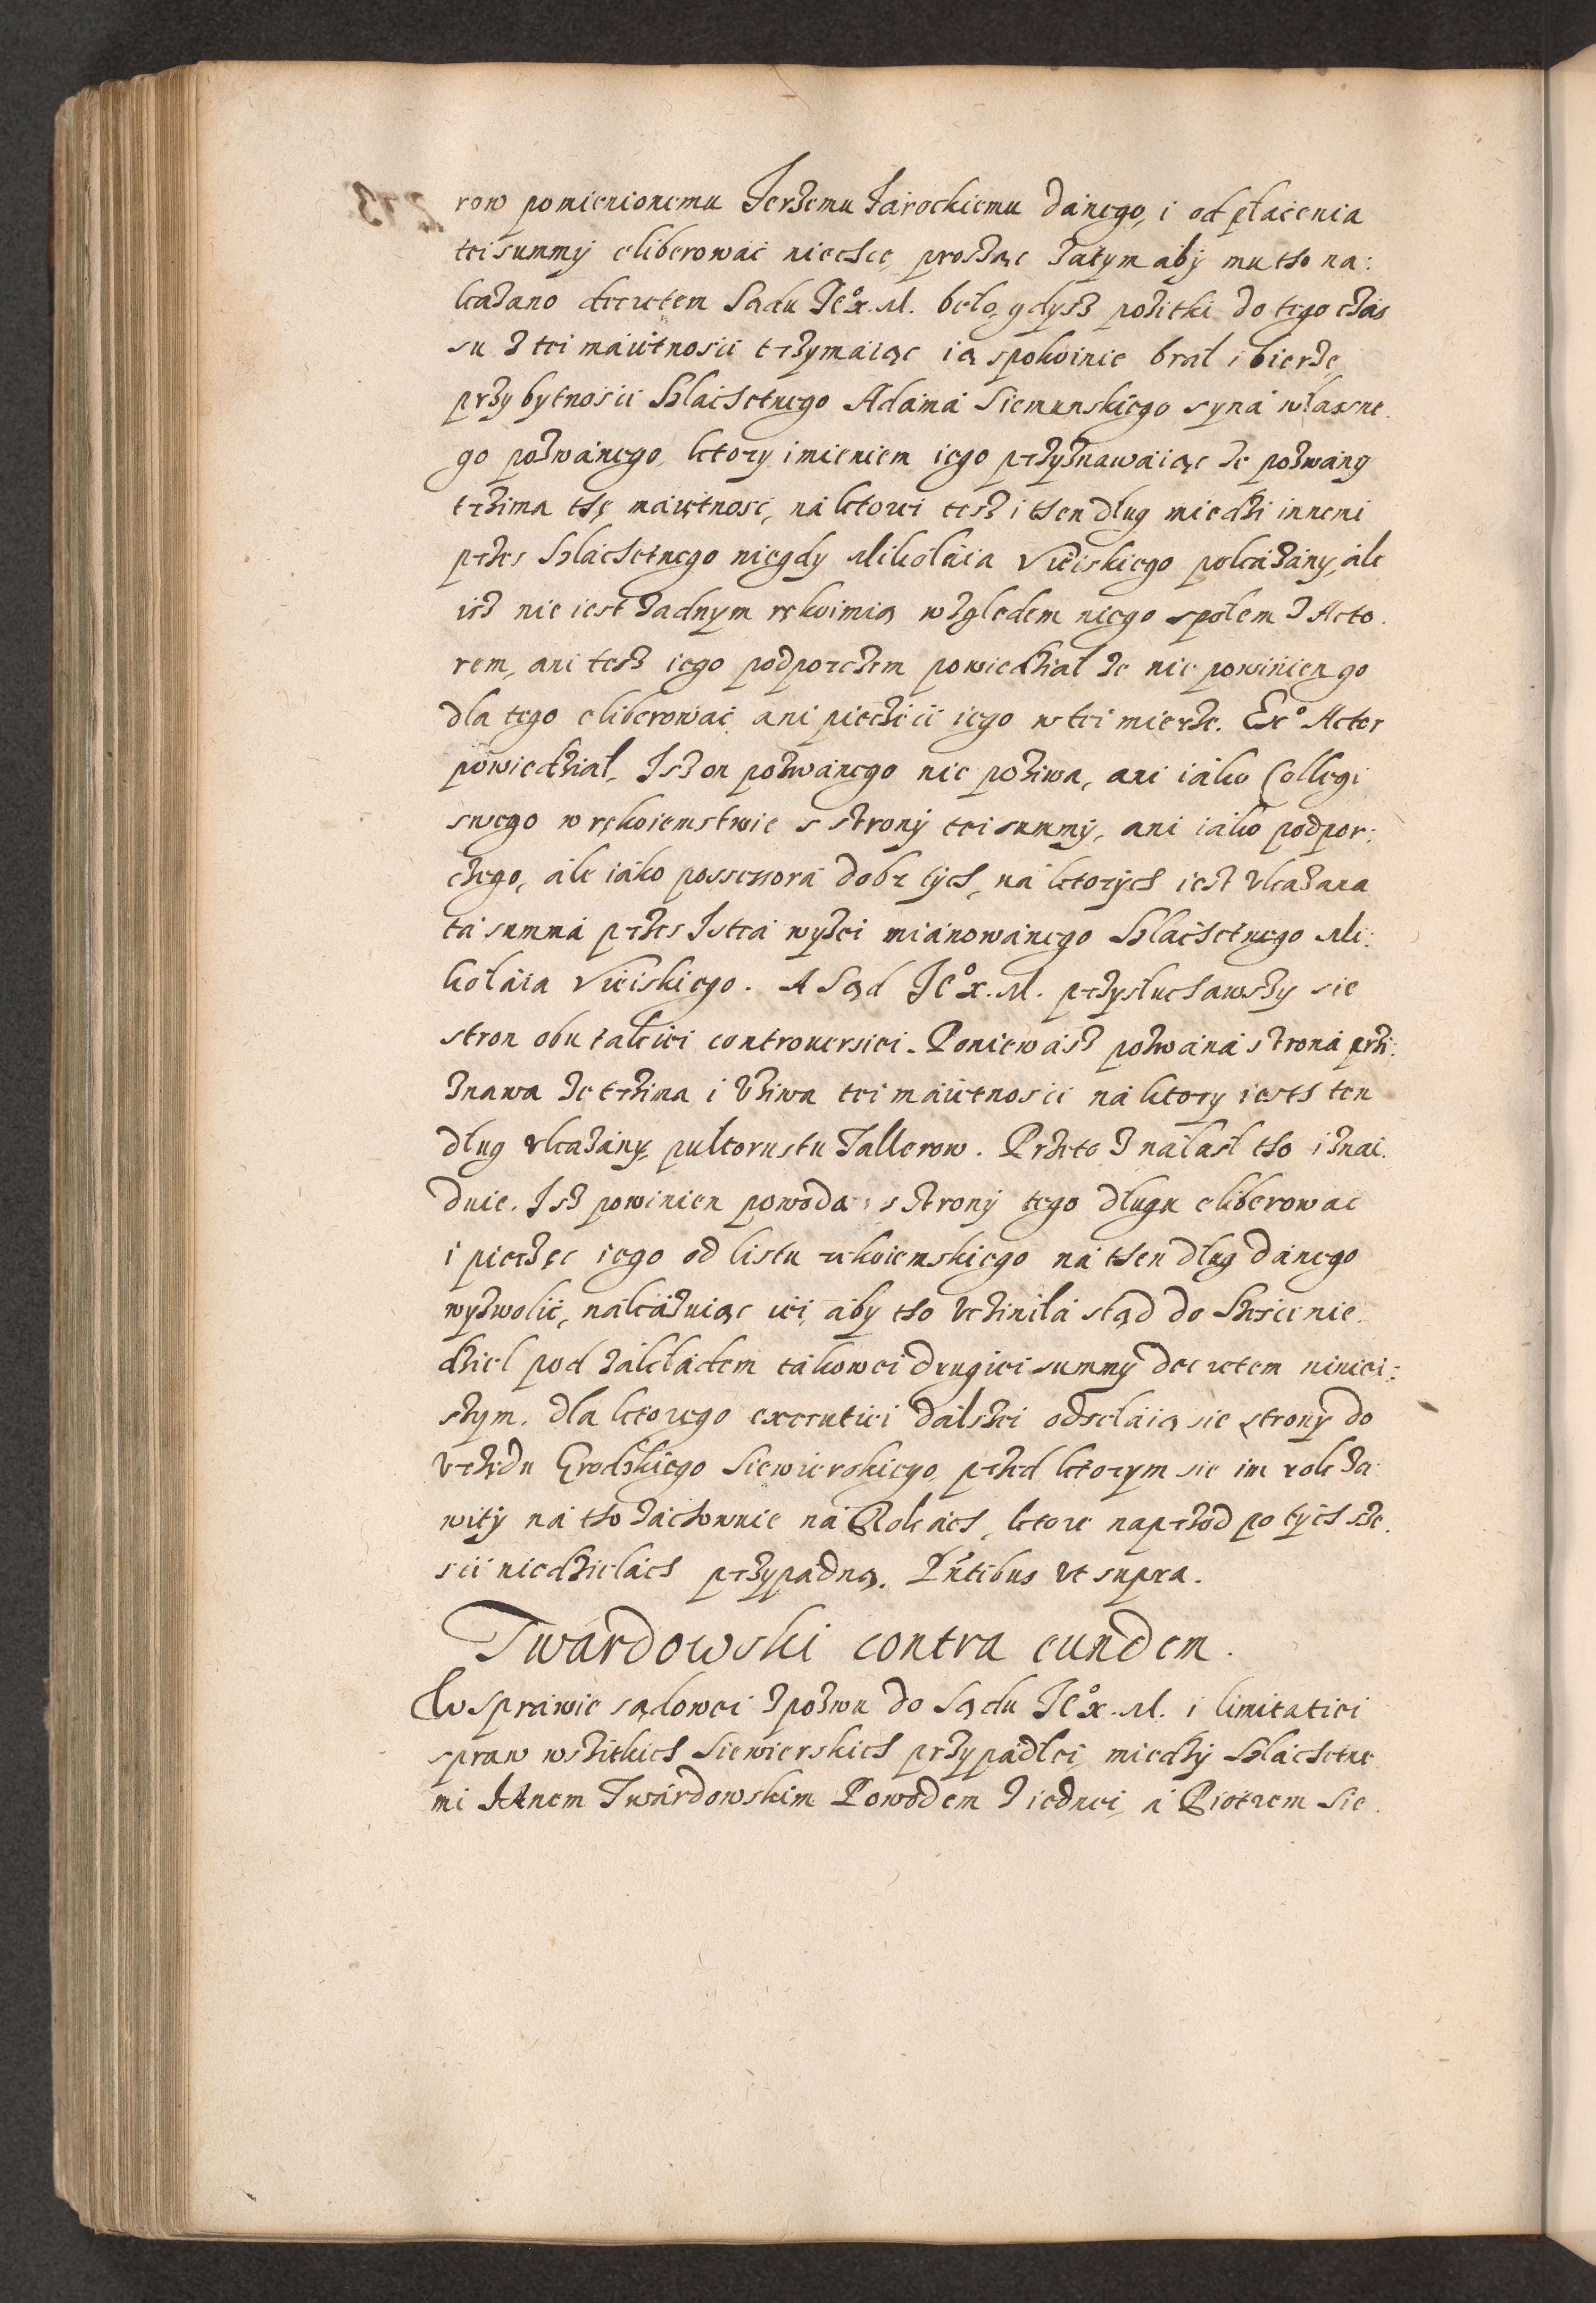 row pomienionemu Jerzemu Jarockiemu dánego, i od płácenia
tei summÿ eliberowáć niechce, prosząc zátym abÿ mu tho na:
kazano decretem Sądu Jeº x. M. beło, gdysz pożitki do tego czás
su z tei máiętnosci trzymaiąc ią spokoinie brał i bierze,
przy bytnosci Slachetnego Adámá Siemunskiego syná własne.
go pozwánego, ktory imieniem iego przyznawaiąc że pozwány
trzima thę máiętnosc, ná ktorei tesz i then dług miedzi innemi
przes Slachetnego niegdy Mikołáia Uieiskiego pokázány, ále
isz nie iest żadnym rękoimią względem niego społem z Acto.
rem, ani tesz iego podporczem powiedział że nie powinien go
dla tego eliberowáć ani pieczęci iego w tei mierze. Exº Actor
powiedział, Isz on pozwánego nie poziwa, ani iáko Collegi
swego w rękoiemstwie s stronÿ tei summÿ, ani iáko podpor:
czego, ále iáko possessora dobr tÿch, ná ktorÿch iest ukazana
tá summá przes Istcá wyżei miánowánego Slachetnego Mi:
kołáia Uieiskiego. A Sąd Jeº x. M. przysłuchawszy sie
stron obu takiei controuersiei. Poniewász pozwáná stroná przi:
znawa że trzima i użiwa tei máiętnosci ná ktory iesth ten
dług ukazány, pułtorustu Tallerow. Przeto ználasł tho i znai.
duie. Isz powinien powodá s stronÿ tego długu eliberowac
i pieczęc iego od listu rękoiemskiego ná then dług dánego
wyzwolić, nákázuiąc iei, áby tho uczinilá stąd do Szesci nie.
dziel pod zákłádem tákowei drugiei summÿ decretem niniei:
szym. dla ktorego executiei dálszei odsełáią sie stronÿ do
urzędu Grodzkiego Siewierskiego, przed ktorym sie im rok za
witÿ ná tho záchownie ná Rokách, ktore naprzod po tÿch sze.
sci niedzielách przypadną. Pñtibus ut supra.
Twárdowski contra eundem.
W spráwie sądowei z pozwu do Sądu Jeº x. M. i limitatiei
spraw wszitkich Siewierskich przypádłei, miedzÿ Slachetne
mi JAnem Twárdowskim Powodem z iednei, á Piotrem Sie.